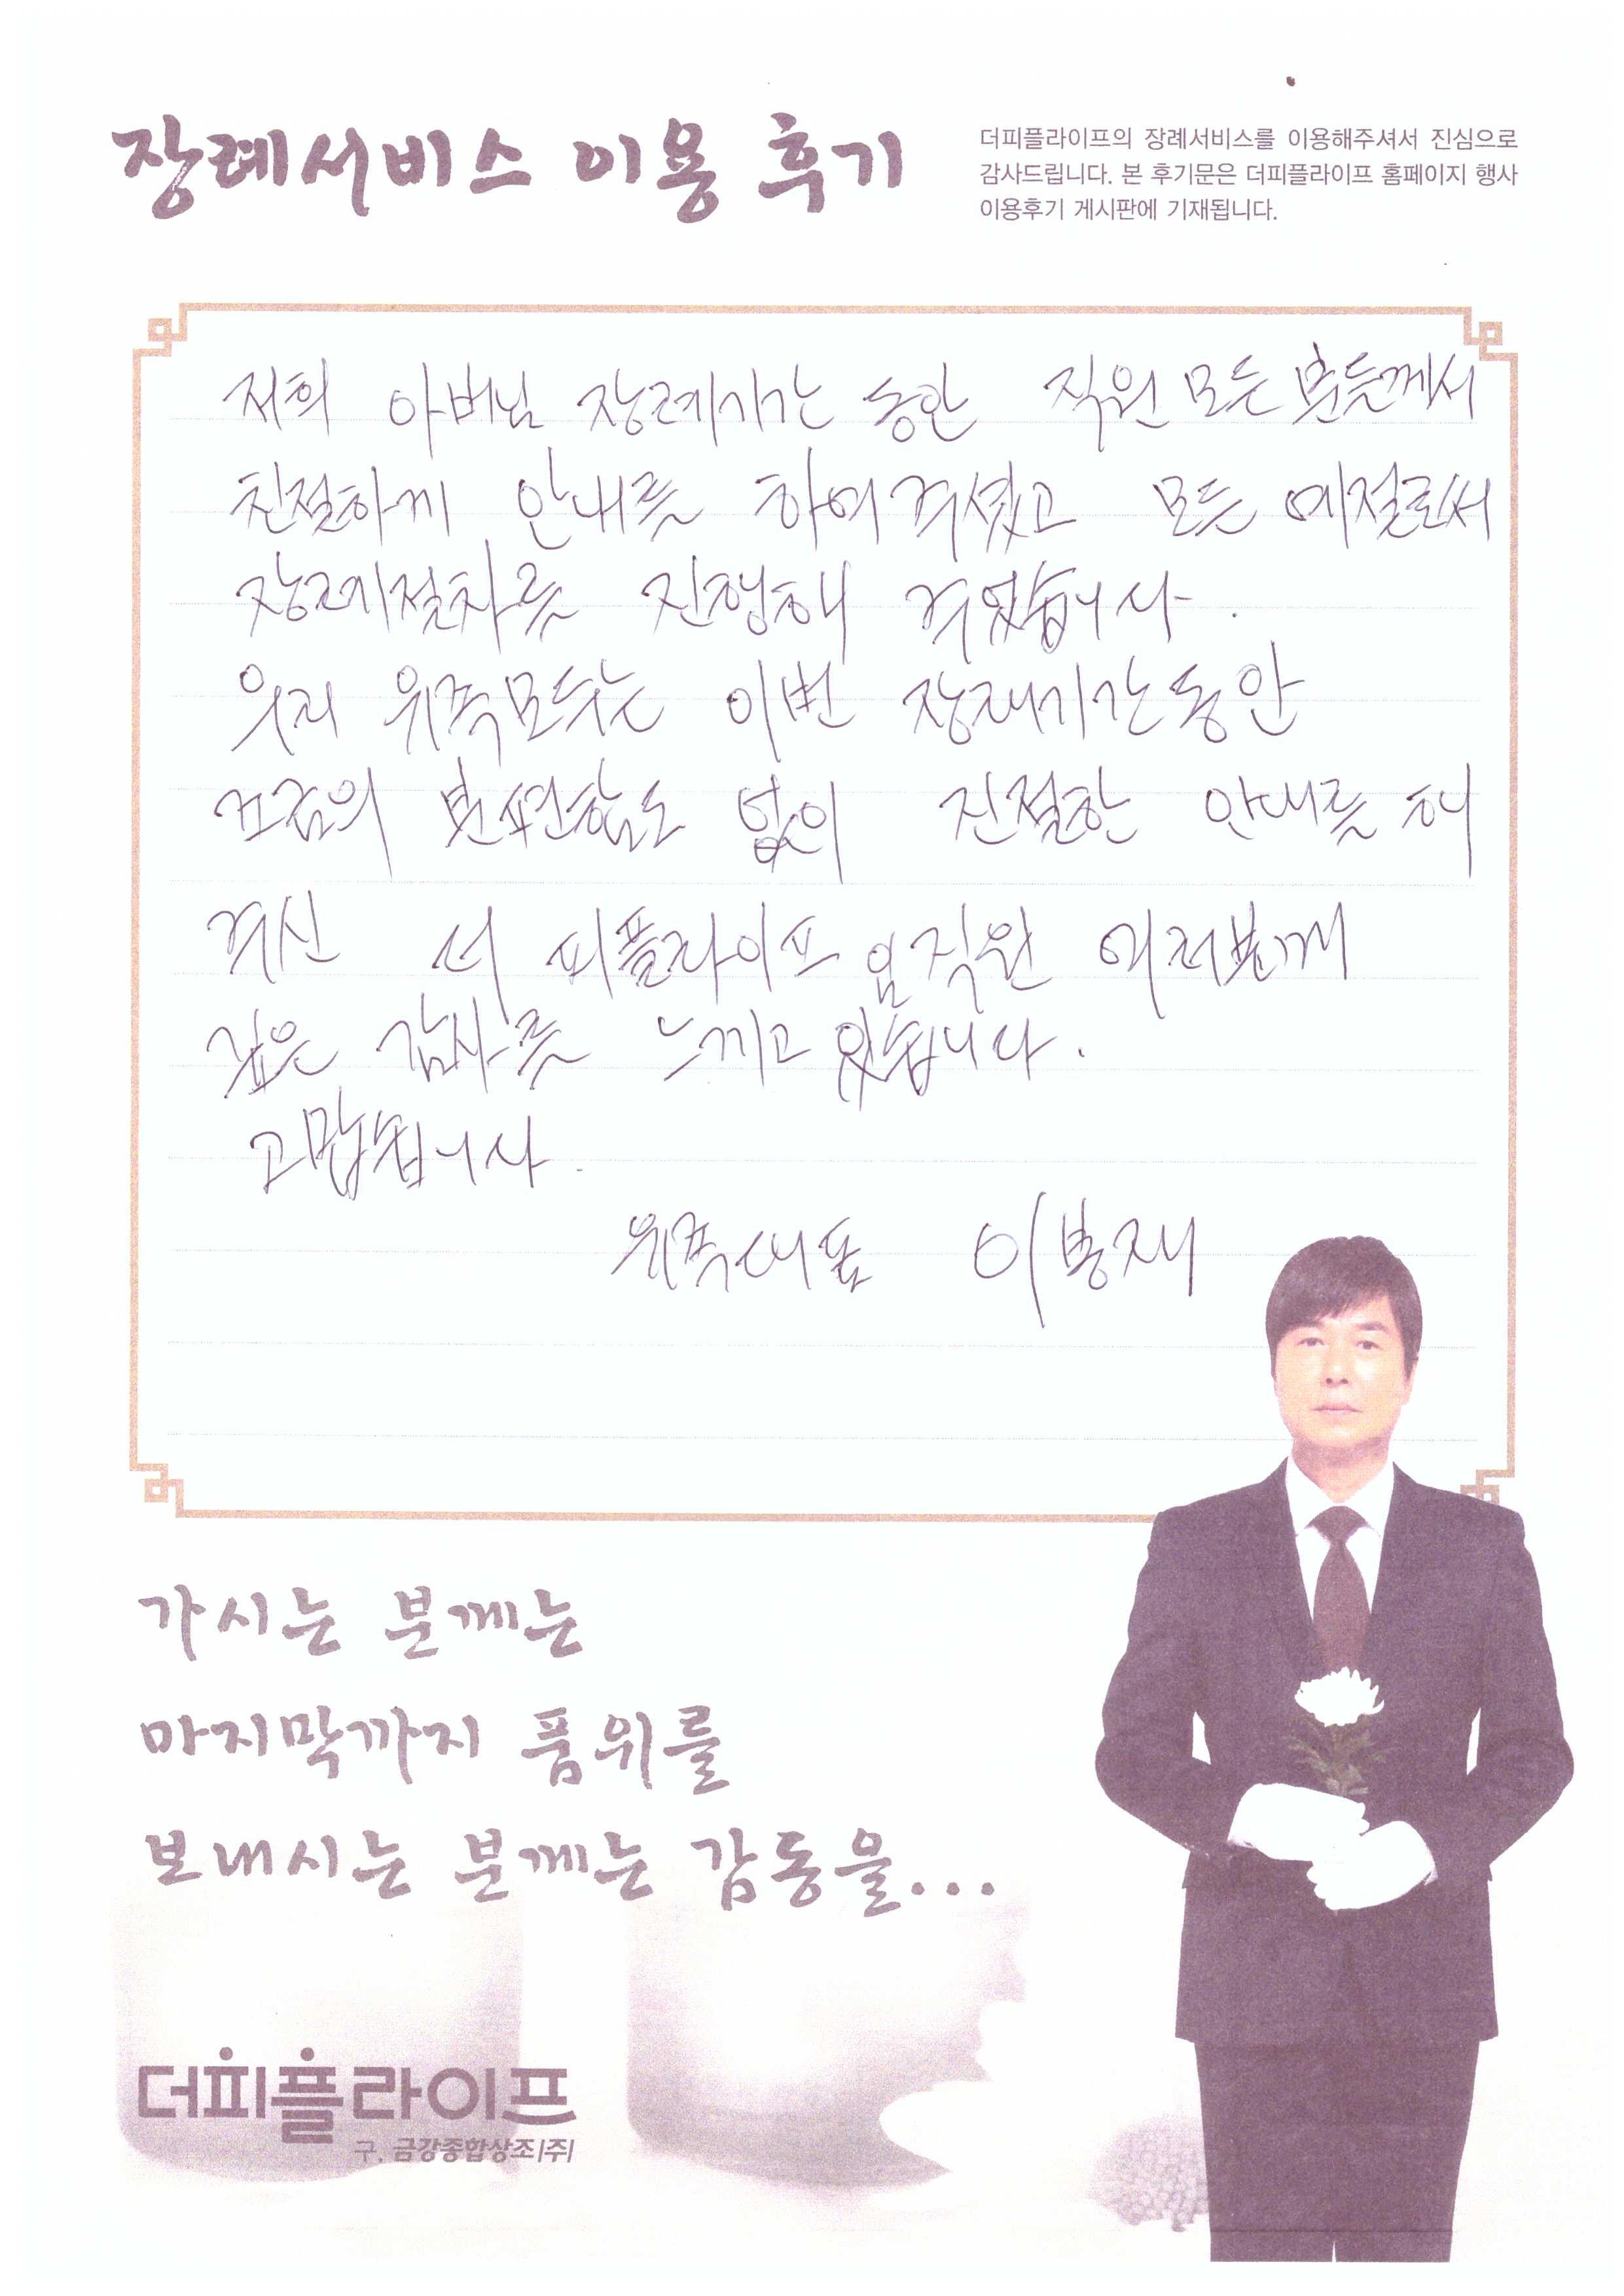 장례서비스 이용 후기
더피플라이프의 장례서비스를 이용해주셔서 진심으로
감사드립니다. 본 후기문은 더피플라이프 홈페이지 행사
이용후기 게시판에 기재됩니다.
저희 아버님 장례기간 동안 직원 모든 분들께서
친절하게 안내를 하여 주셨고 모든 예절로써
장례절차를 진행해 주었습니다.
우리 유족모두는 이번 장래기간동안
조금의 불편함도 없이 친절한 안내를 해
주신 더 피플라이프 임직원 여러분께
깊은 감사를 느끼고 있습니다.
고맙습니다.
유족대표 이봉재
가시는 분께는
마지막까지 품위를
보내시는 분께는 감동을...
더피플라이프
구. 금강종합상조|주|